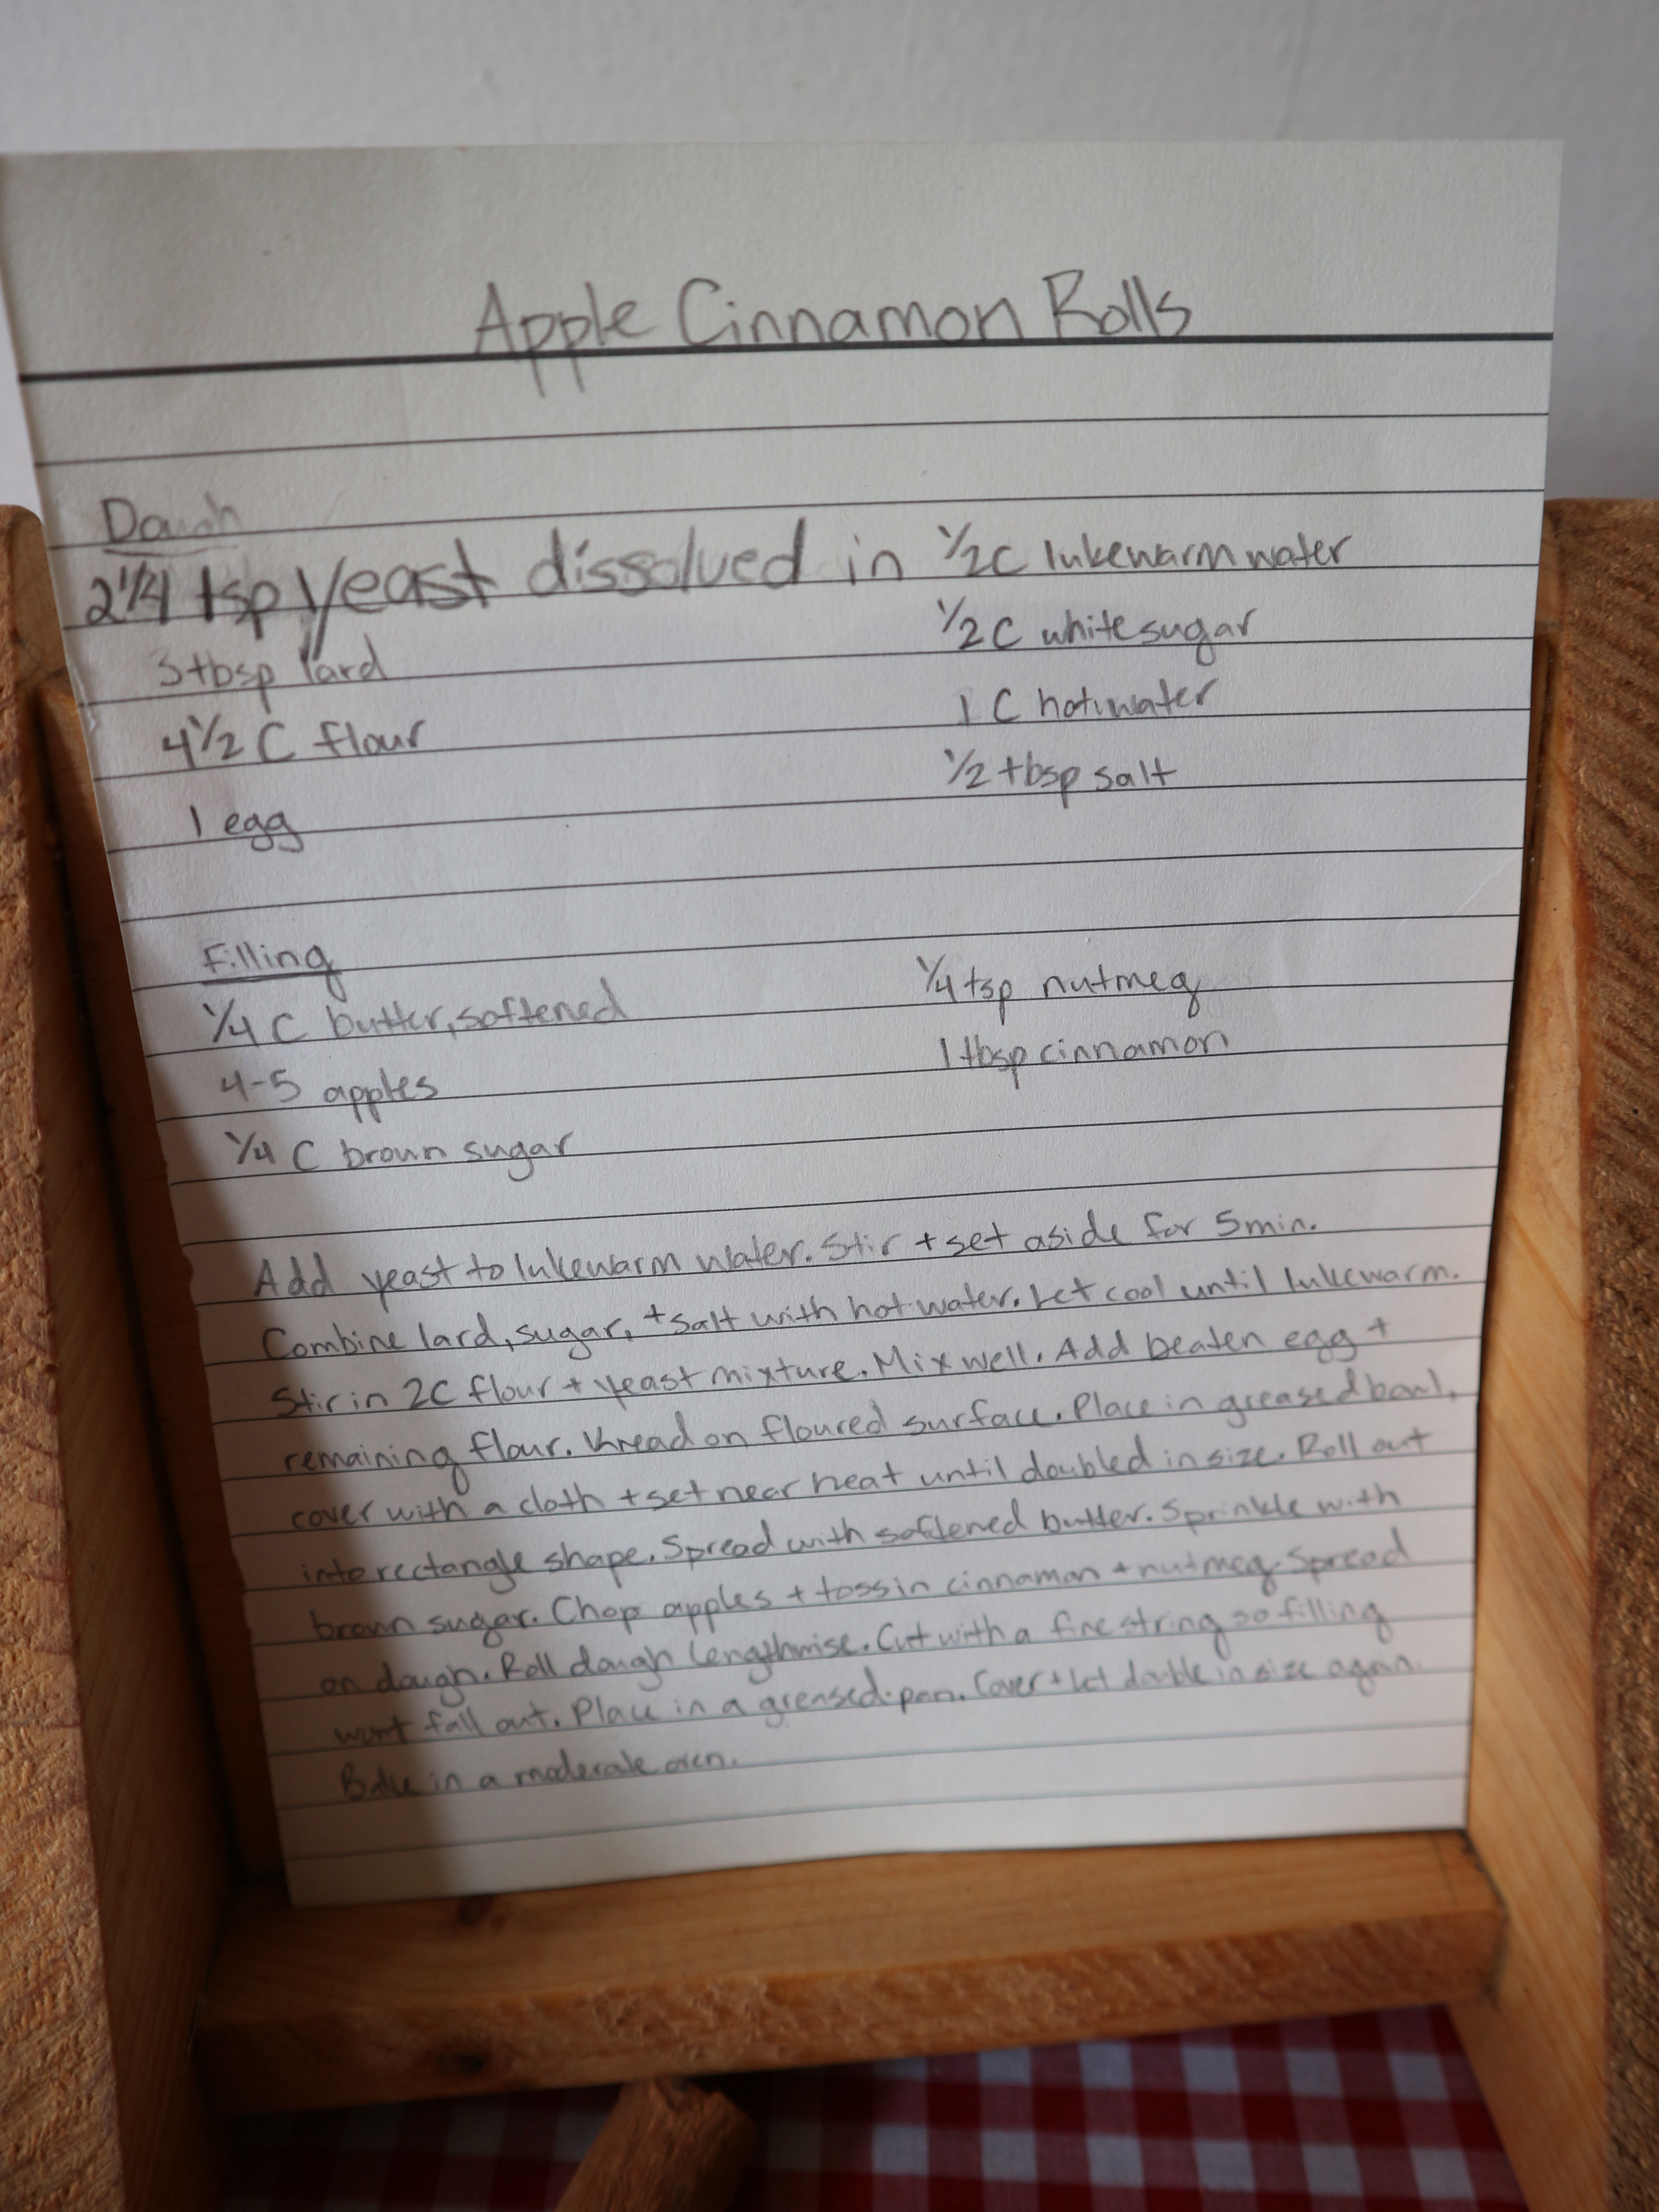 Apple Cinnamon Rolls
Dough
2 1/4 tsp yeast dissolved in 1/2 C lukewarm water
3 tbsp lard
1/2 C white sugar
4 1/2 C flour
1 C hot water
1 egg
1/2 tbsp salt
Filling
1/4 C butter, softened
1/4 tsp nutmeg
4-5 apples
1 tbsp cinnamon
1/4 C brown sugar
Add yeast to lukewarm water. Stir + set aside for 5 min.
Combine lard, sugar, + salt with hot water. Let cool until lukewarm.
Stir in 2C flour + yeast mixture. Mix well. Add beaten egg +
remaining flour. Knead on floured surface. Place in greased bowl,
cover with a cloth + set near heat until doubled in size. Roll out
into rectangle shape. Spread with softened butter. Sprinkle with
brown sugar. Chop apples + toss in cinnamon + nutmeg. Spread
on dough. Roll dough lengthwise. Cut with a fine string so filling
wont fall out. Place in a greased pan. Cover + let double in size again.
Bake in a moderate oven.